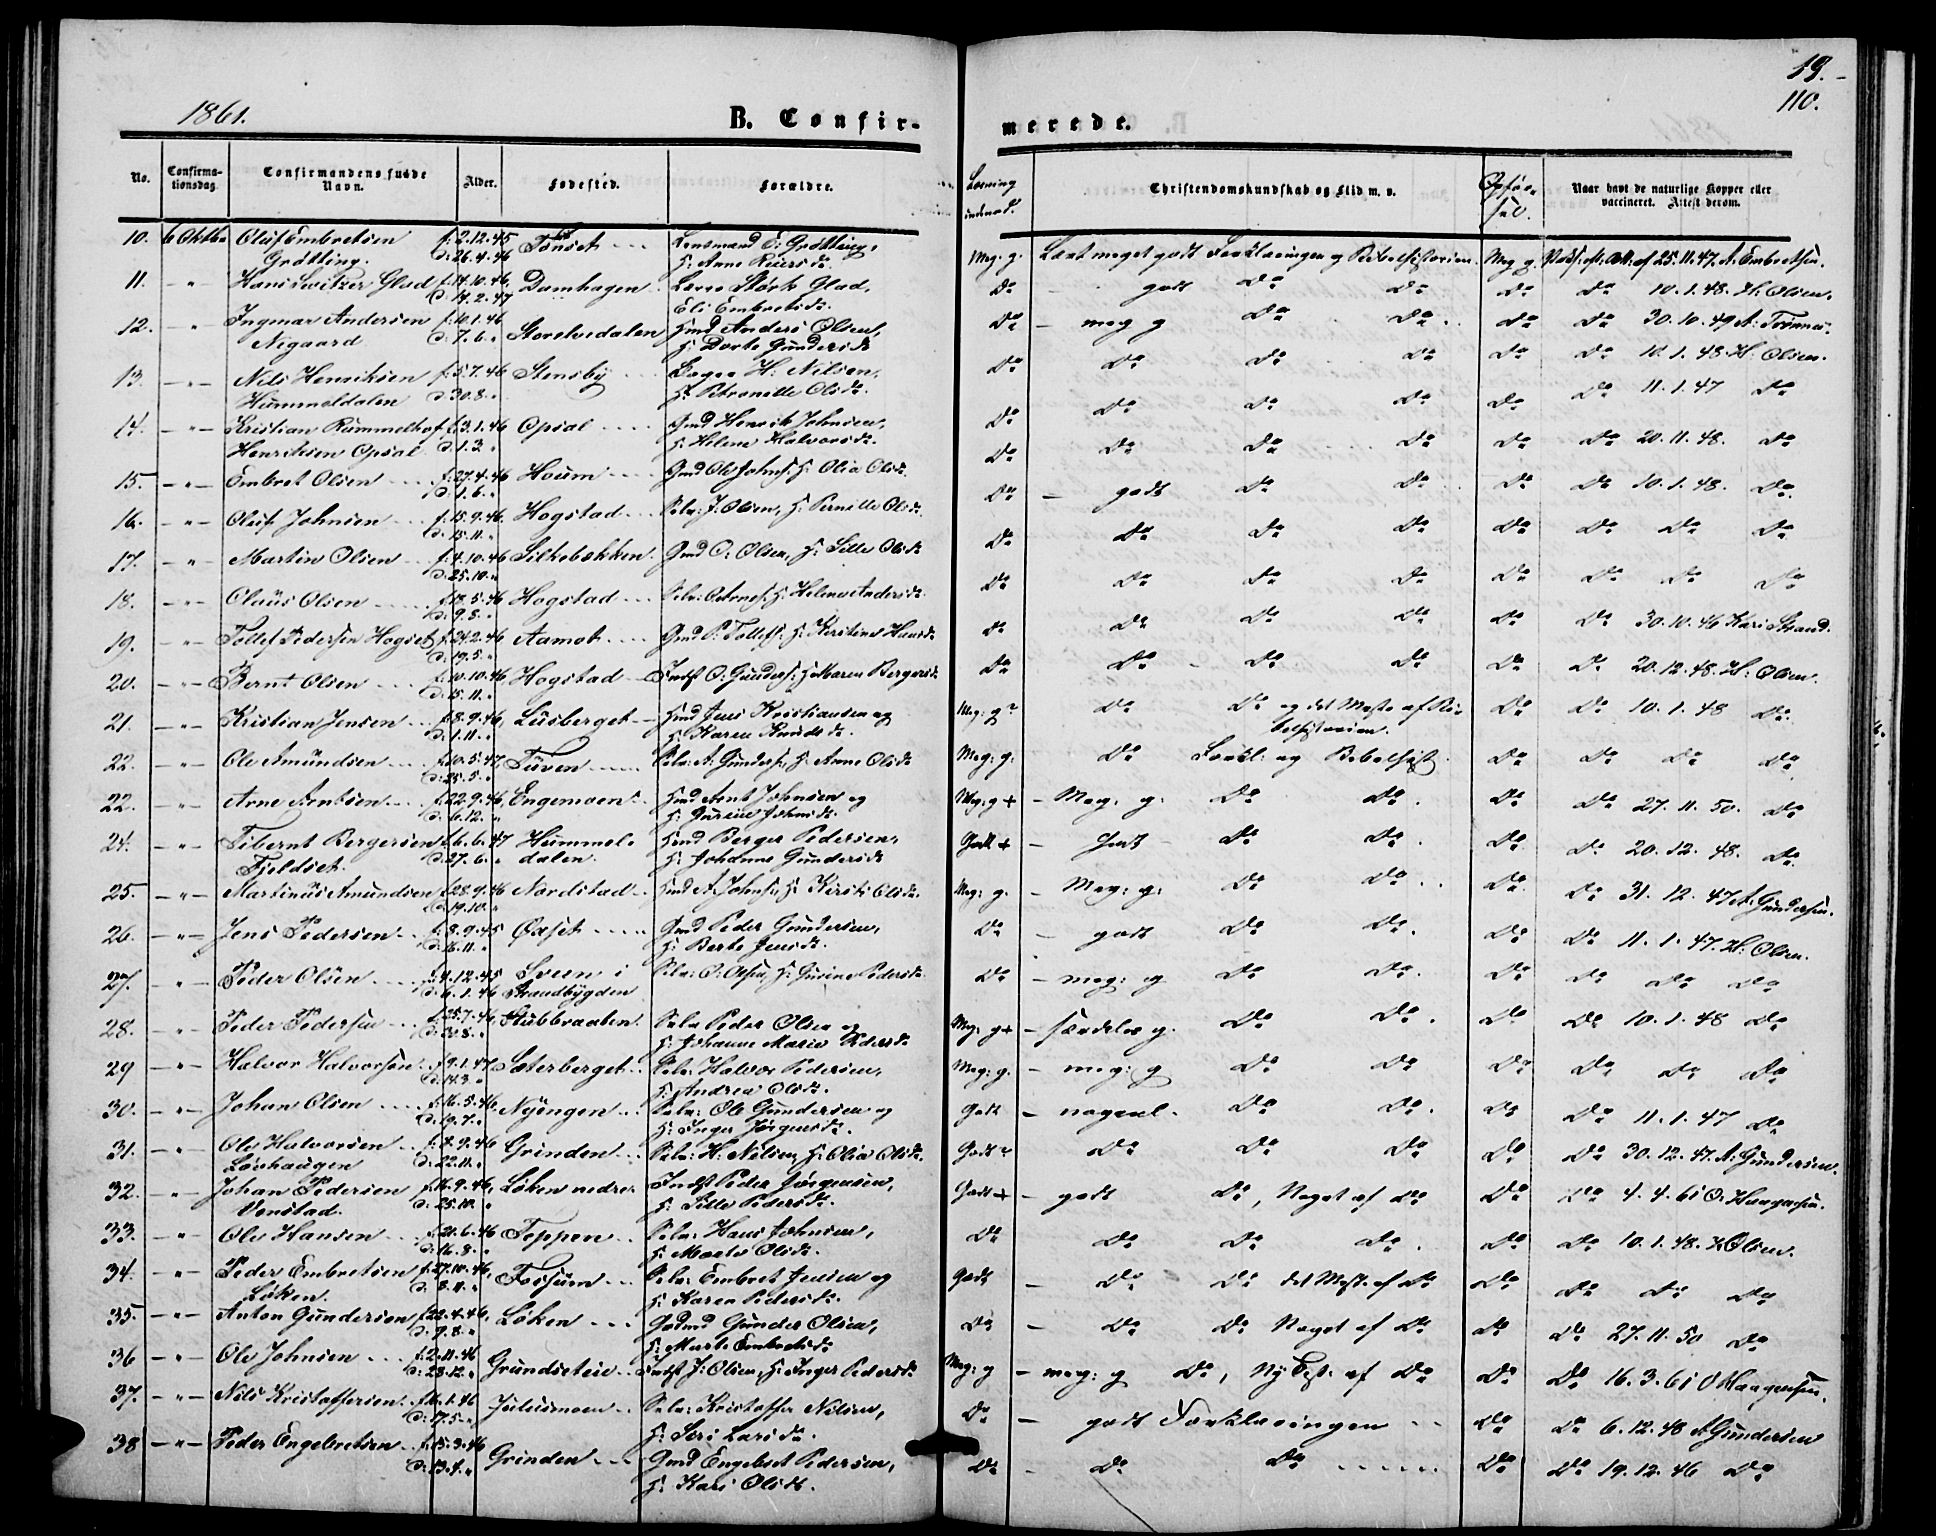 19.
110.
1861.
B. Confir-
merede.
No.
Confirma-
tionsdag.
Confirmandens fulde
Navn.
Alder.
Fødested.
Forældre.
Læsning
indenad.
Christendomskundskab og Flid m. v.
Opfør-
sel.
Naar havt de naturlige Kopper eller
vaccineret. Attest derom.
10. 6 Oktbr Oluf Embretsen f. 2.12.45 Tønset Lensmand E. Grøtting, Meg: g. Lært meget godt Forklaringen og Bibelhistorien. Meg g. 25.11.47. A. Embretsen.
Grøtting. D. 26.4.46 H: Anne
11. - " - Hans Switzer Glad f. 14.10.46, Damhagen Lars Stork Glad, Do - godt Do Do Do Do 10.1.48. H: Olsen.
D. 14.2.47 Eli Embretsdr.
12. - " - Ingmar Andersen f. 10.1.46 Storelvedalen Hmd Anders Olsen, Do - meg g Do Do Do Do 30.10.49 A:
Nigaard D. 7.6. " H: Dorte Gundersdr
13. - " - Nils Henriksen f. 5.7.46 Stensby H: Nilsen, Do Do Do Do Do Do 10.1.48. H: Olsen.
Hummeldalen D. 30.8. " H: Petronelle Olsdr.
14. - " - Kristian Rummelhof f. 3.1.46 Opsal Gmd Henrik Johnsen, Do Do Do Do Do Do 11.1.47 Do
Henriksen Opsal D. 1.3. " H: Helene Halvorsdr.
15. - " - Embret Olsen f. 27.4.46 Houm Gmd Ole Johns. H: Olia Olsdr. Do Do Do Do Do Do 20.11.48. Do
D. 1.6. "
16. - " - Oluf Johnsen f. 15.9.46 Hogstad J. Olsen, H: Pernille Olsdr. Do - godt Do Do Do Do 10.1.48. Do
D. 15.11. "
17. - " - Martin Olsen f. 4.10.46 Silkebækken Gmd O. Olsen, H: Sille Olsdr Do Do Do Do Do Do Do Do
D. 25.10. "
18. - " - Olaus Olsen f. 18.5.46 Hogstad H: Helene Andersdr. Do Do Do Do Do Do Do Do
D. 9.8. "
19. - " - Tollef Pedersen Hogset f. 24.2.46 Aamot Gmd P. Tollefs. H: Kerstine Hansdr Do Do Do Do Do Do 30.10.46 Kari Strand.
D. 19.5. "
20. - " - Bernt Olsen f. 10.10.46 Hogstad Indst O. Gunders. H: Maren Bergersdr Do Do Do Do Do Do 20.12.48. H: Olsen.
D. 15.11. "
21. - " - Kristian Jensen f. 8.9.46, Lusberget Hmd Jens Kristiansen og Meg: g? Do Do og det Meste af Bi- Do Do 10.1.48 Do
D. 1.11. " H: Karen Knudsdr. belhistorien.
22. - " - Ole Amundsen f. 10.5.47 Tuven A. Gunders. H: Anne Olsdr Meg: g: Do Forkl: og Bibelhist. Do Do Do Do
D. 25.5. "
22. - " - Arne Arntsen f. 22.9.46, Engemoen Hmd Arnt Johnsen og Meg: g + - Meg: g. Do Do Do Do 27.11.50. Do
D. 6.12. " H: Gurine Johnsdr.
24. - " - Tibernt Bergersen f. 6.6.47 Hummel- Hmd Berger Pedersen, Godt + - Godt Do Do Do Do 20.12.48. Do
Fjeldset. D. 27.6. " dalen. H: Johanne Gundersdr
25. - " - Martinus Amundsen f. 28.9.46 Nordstad Hmd A. Johns. H: Kirsti Olsdr. Meg: g. - Meg: g: Do Do Do Do 31.12.47 A. Gundersen.
D. 19.10. "
26. - " - Jens Pedersen f. 8.9.45 Øxset Gmd Peder Gundersen, Do - godt Do Do Do Do 11.1.47. H: Olsen.
D. 16.11. " H: Berte Jensdr.
27. - " - Peder Olsen f. 9.12.45 Sveen i O. Olsen, H: Gurine Pedersdr. Do - meg: g Do Do Do Do Do Do
D. 6.1.46 Strandbygden
28. - " - Peder Pedersen f. 25.7.46, Stubbraaten Peder Olsen og Meg: g + - særdeles g. Do Do Do Do 10.1.48 Do
D. 30.8. " H: Johanne Marie Pedersdr
29 - " - Halvor Halvorsen f. 9.1.47 Sæterberget Halvor Pedersen, Meg: g. - meg: g Do Do Do Do Do Do
D. 14.3. " H: Andrea Olsdr.
30. - " - Johan Olsen f. 16.5.46, Nyengen Ole Gundersen og Godt - nogenl. Do Do Do Do 11.1.47 Do
D. 19.7. " H: Inger Jørgensdr.
31. - " - Ole Halvorsen f. 8.9.46 Grinden H: Nilsen, H: Olia Olsdr. Godt Do Do Do Do Do 30.12.47. A: Gundersen.
Løvhaugen D. 22.11. "
32. - " - Johan Pedersen f. 16.9.46, Løken nedre Indst Peder Jørgensen, Godt + - godt Do, Noget af Do Do Do 4.4.61 O. Haagensen.
Vonstad. D. 25.10. " H: Sille Pedersdr.
33. - " - Ole Hansen f. 21.6.46 Teppen Hans Johnsen, Do Do Do Do Do Do 10.1.48. H Olsen.
D. 16.8. " H: Marte Olsdr.
34. - " - Peder Embretsen f. 27.10.46, Fossum Embret Jensen og Godt - Do Do det Meste af Do Do Do Do Do
Løken. D. 8.11. " H: Karen Pedersdr.
35. - " - Anton Gundersen f. 22.4.46, Løken Gunder Olsen, Do - Do Do Noget af Do Do Do 27.11.50 Do
D. 9.8. " H: Marte Embretsdr
36 - " - Ole Johnsen f. 2.11.46 Grundseteie Indst J. Olsen, H: Inger Pedersdr Meg: g - meg: g Do, Ny Test. af Do Do Do 16.3.61 O Haagensen.
D. 28.12. "
37. - " - Nils Kristoffersen f. 16.1.46 Juliusmoen Kristoffer Nilsen, Do - godt Forklaringen Do Do 6.12.48 A Gundersen
D. 17.5. " H: Siri Larsdr.
38 - " - Peder Engebretsen f. 15.3.46 Grinden Gmd Engebret Pedersen, Do - Do Do Do Do 19.12.46 Do
D. 13.4. " H: Kari Olsdr.